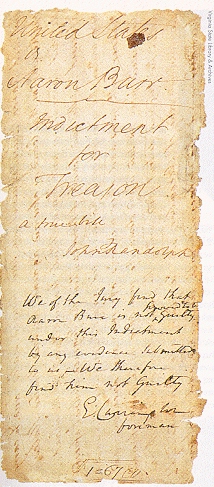 United States
vs
Aaron Burr
Indictment
for
Treason
a true bill
John Randolph
We of the Jury find that
Aaron Burr is not proved to be guilty
under this Indictment
by any evidence submitted
to us We therefore
find him not Guilty
foreman
Virginia State Library & Archives